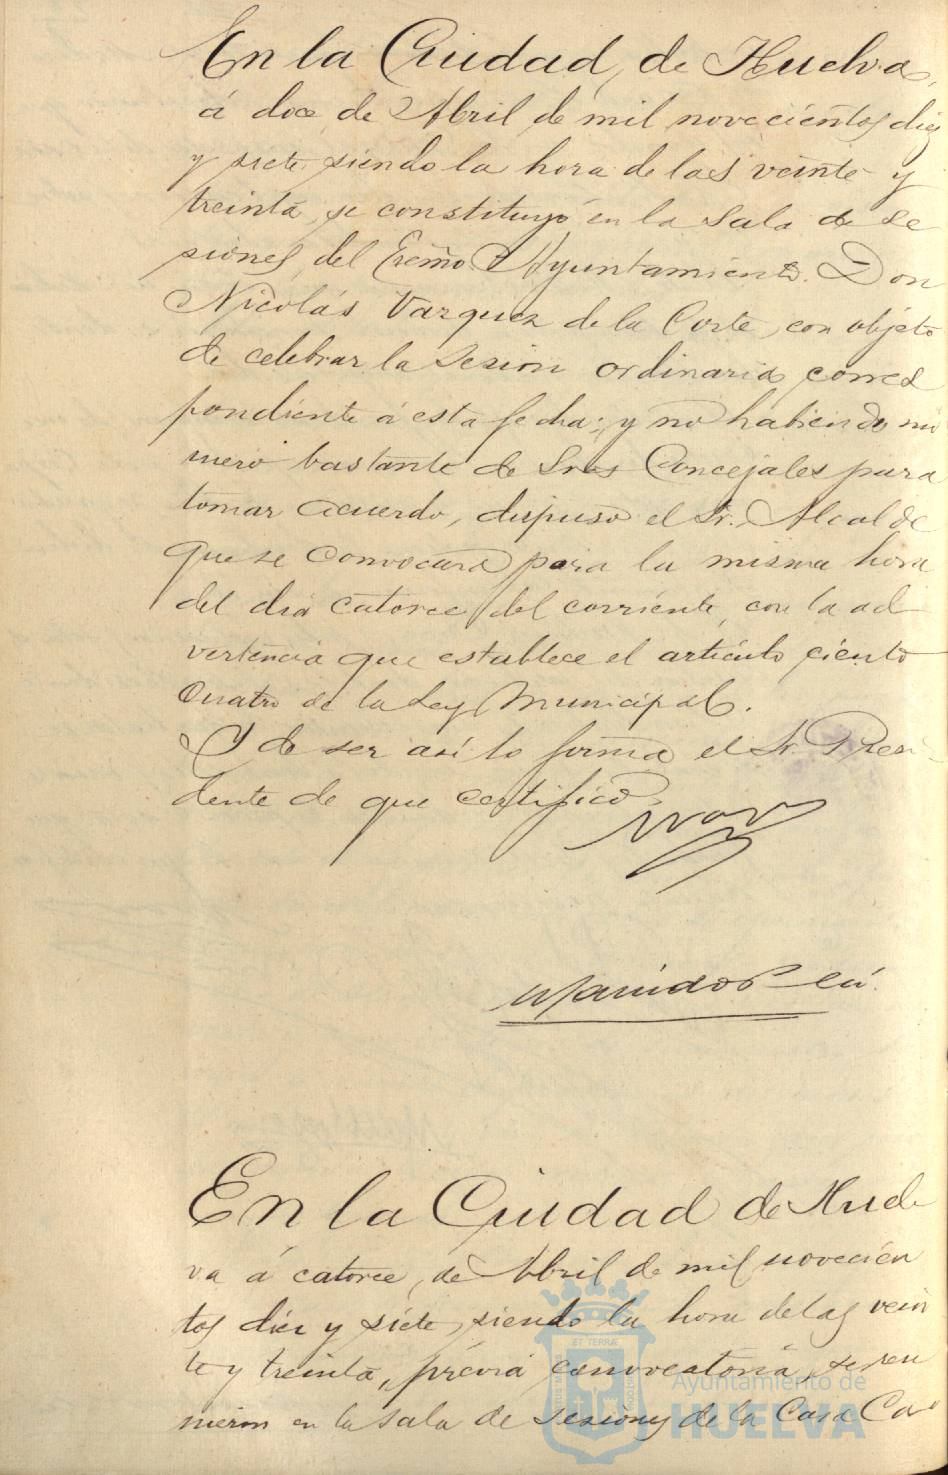 En la Ciudad de Huelva,
á doce de Abril de mil novecientos diez
y siete siendo la hora de las veinte y
treinta se constituyó en la Sala de Se
siones del Excmo Ayuntamiento. Don
Nicolás Vazquez de la Corte, con objeto
de celebrar la Sesion ordinaria corres
pondiente á esta fecha; y no habiendo nú
mero bastante de Sres Concejales para
tomar acuerdo, dispuso el Sr. Alcalde
que se convocara para la misma hora
del dia catorce del corriente, con la ad
vertencia que establece el artículo ciento
cuatro de la Ley Municipal.
Y de ser así lo firma el Sr. Presi
dente de que certifico.
En la Ciudad de Huel
va á catorce, de Abril de mil novecien
tos diez y siete, siendo la hora de las vein
te y treinta, previa convocatoria, se reu
nieron en la Sala de Sesiones de la Casa Ca
Ayuntamiento de
HUELVA